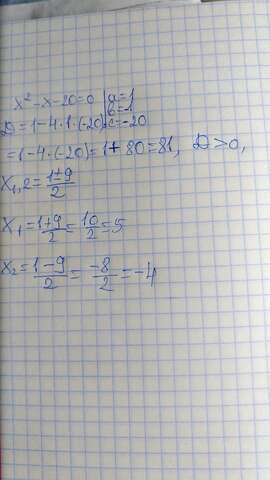 x²-x-20=0 | a=1
b=-1
D=1-4·1·(-20) c=-20
=(1-4·(-20)=1+80=81, D>0,
x₁,₂=\frac{1±9}{2}
x₁=\frac{1+9}{2}=\frac{10}{2}=5
x₂=\frac{1-9}{2}=\frac{-8}{2}=-4